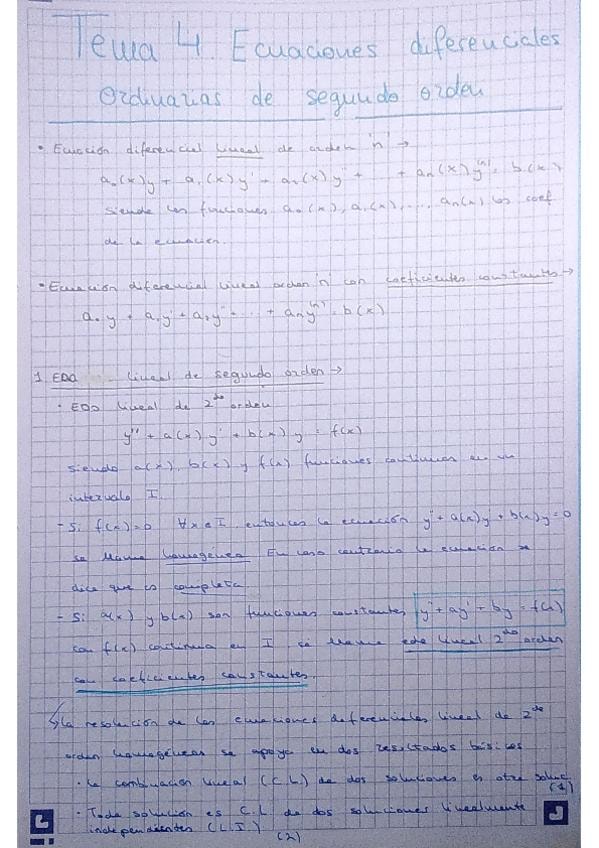 Tema 4. Ecuaciones diferenciales
Ordinarias de segundo orden
• Ecuación diferencial lineal de orden 'n' →
a₀(x)y + a₁(x)y' + a₂(x)y + + aₙ(x)y⁽ⁿ⁾ = b(x)
siendo las funciones a₀(x), a₁(x), ..., aₙ(x) los coef
de la ecuación.
• Ecuación diferencial lineal orden 'n' con coeficientes constantes →
a₀y + a₁y' + a₂y + ... + aₙy⁽ⁿ⁾ = b(x)
1. EDO lineal de segundo orden →
· EDO lineal de 2do orden
y'' + a(x)y' + b(x)y = f(x)
siendo a(x), b(x) y f(x) funciones continuas en un
intervalo I.
- Si f(x)=0 ∀x∈I entonces la ecuación y''+a(x)y'+b(x)y=0
se llama homogénea En caso contrario la ecuación se
dice que es completa
- Si a(x) y b(x) son funciones constantes y''+ay'+by=f(x)
con f(x) continua en I se llama edo lineal 2do orden
con coeficientes constantes.
↳ la resolución de las ecuaciones diferenciales lineal de 2do
orden homogéneas se apoya en dos resultados básicos
· La combinación lineal (C.L) de dos soluciones es otra soluc
(1)
· Toda solución es C.L. de dos soluciones linealmente
independientes (L.I) (2)